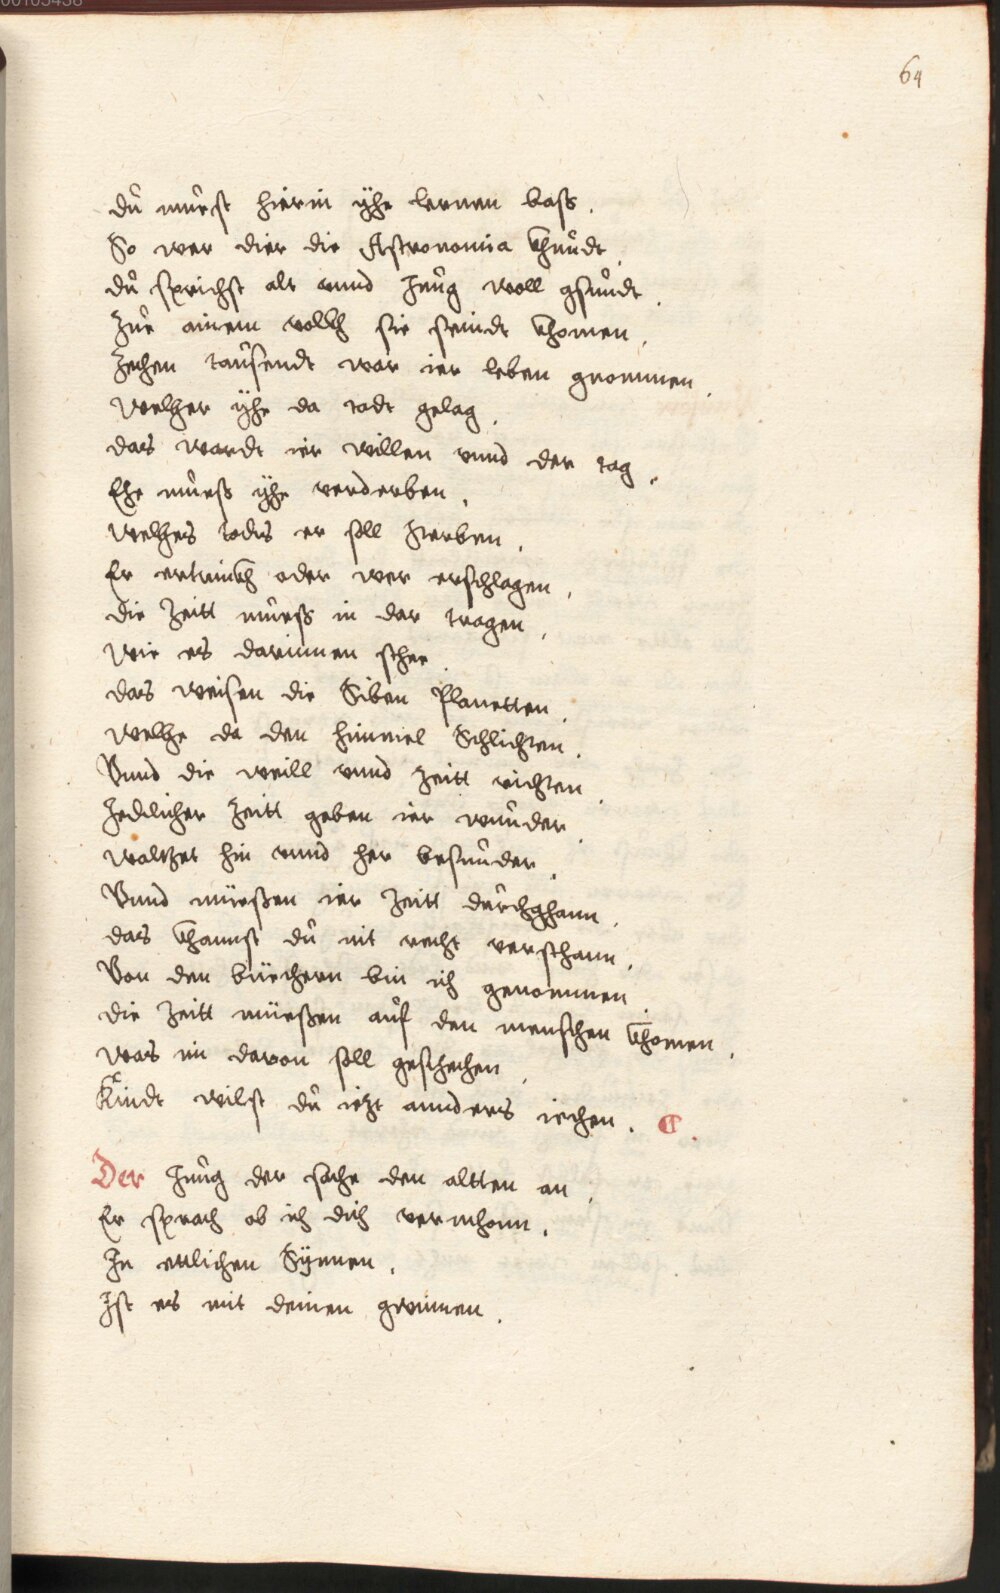 00105458
64
dů muest hierin yhe lernen bass.
So wer dier die Astronomia khundt.
dů sprichst alt unnd Jung woll gsundt.
Zue ainem vollkh sie seindt khomen.
Zechen taůsendt war ier leben gnommen.
Welher yhe da todt gelag.
das wardt ier willen unnd der tag.
Ehe muess yhe verderben.
Welhes todts er soll sterben.
Er ertrinkh oder wer erschlagen.
die Zeitt muess in dar tragen.
Wie es darinnen stee.
das weisen die Siben Planetten.
Welhe da den himmel Schlichten.
Vnnd die weill vnnd Zeitt richten.
Jedlicher Zeitt geben ier wunder.
waltzet hin vnnd her besunder.
Vnnd müessen ier Zeitt durchghann.
das khannst dů nit recht verstann.
Von den büechern bin ich genommen.
die Zeitt müessen auf den menschen khomen.
was im davon soll geschechen.
Kindt wilst dů ietzt annders iechen.
Der Jung der sache den altten an.
Er sprach ob ich dich vermhonn.
In ettlichen Synnen.
Ist es mit deinen gwinnen.